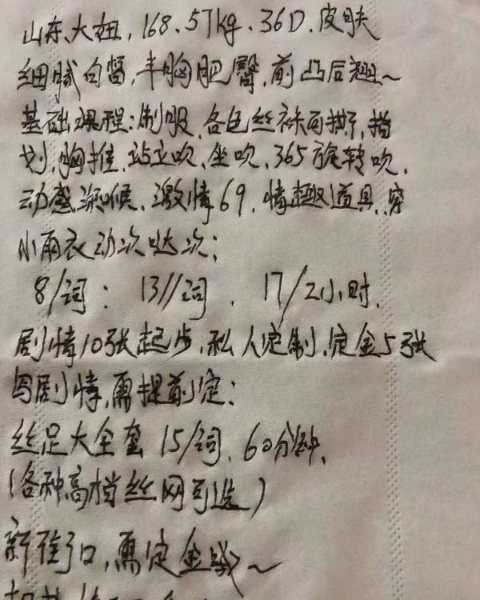 山东大妞，168.57kg.36D.皮肤
细腻白皙，丰胸肥臀，前凸后翘～
基础课程：制服、各色丝袜可撕，指
划，胸推，站立吹，坐吹，365旋转吹，
动感深喉，激情69，情趣道具，穿
小雨衣动次哒次；
8/词： 13//词． 17/2小时．
剧情10张起步，私人定制，定金5张
写剧情，需提前定：
丝足大全套 15/词．60分钟．
（各种高档丝网可选）
新街口，需定金